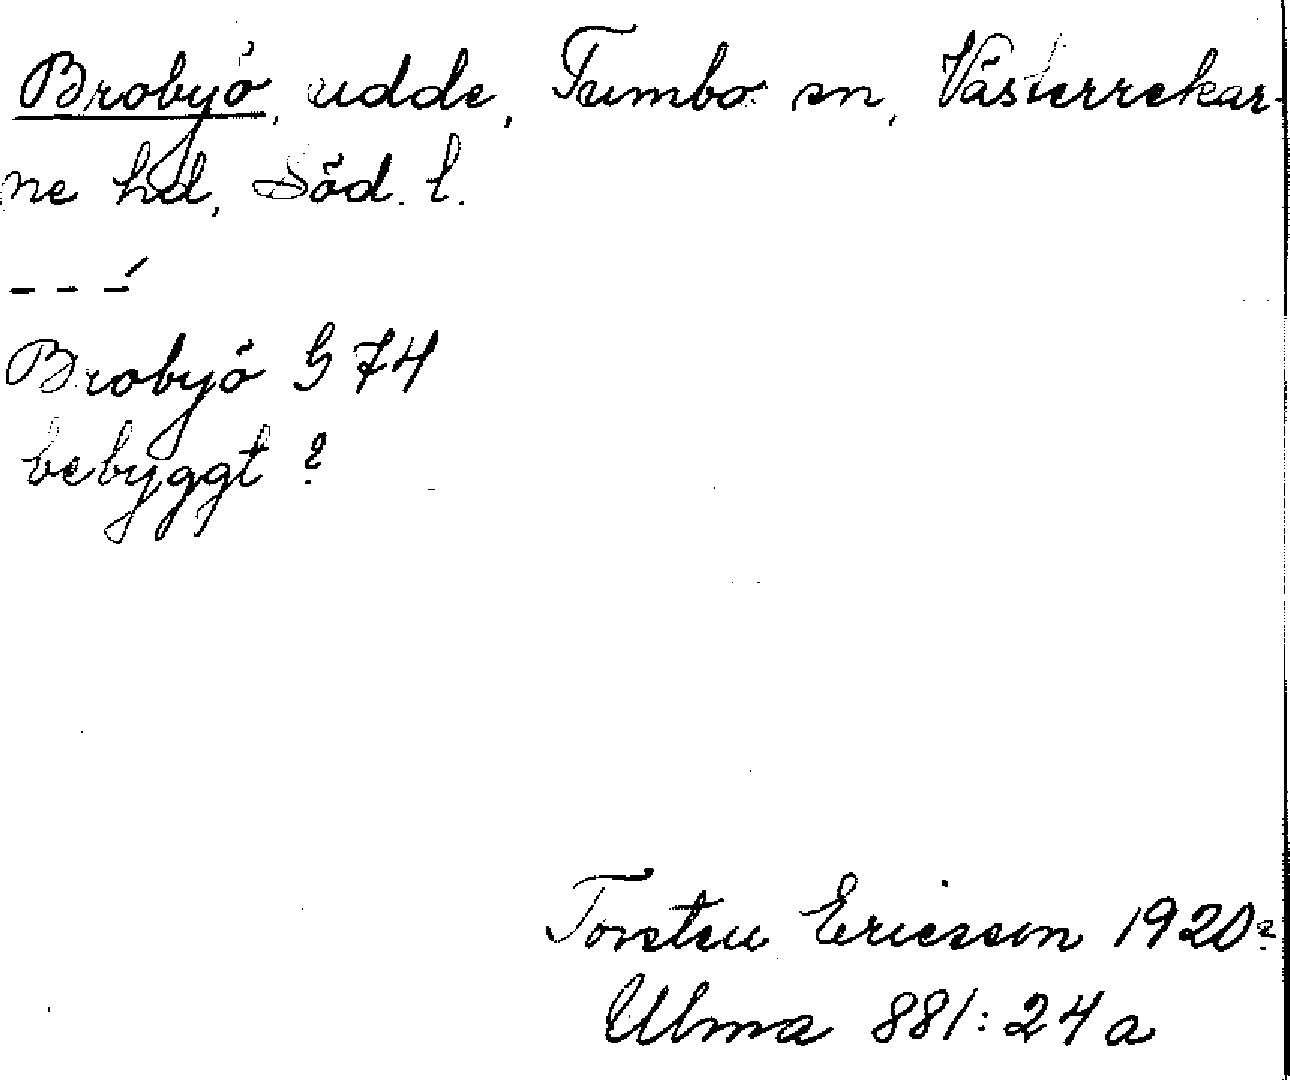 Brobyö, udde, Tumbo sn, Västerrekar-
ne hd, Söd. l.
– – –́
Brobyö G 74
bebyggt ?
Torsten Ericsson 1920?
Ulma 881:24a